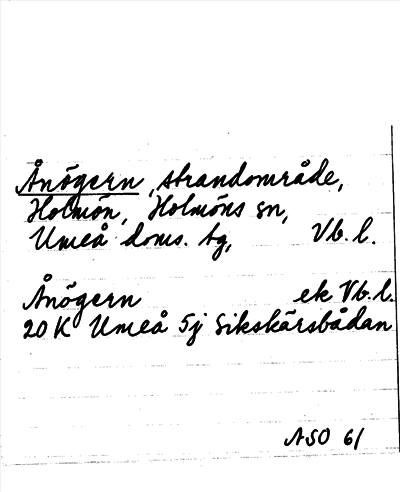 Ånögern, strandområde,
Holmön, Holmöns sn,
Umeå doms. tg, Vb. l.
Ånögern ek Vb. l.
20 K Umeå 5j Sikskärsbådan
ASO 61